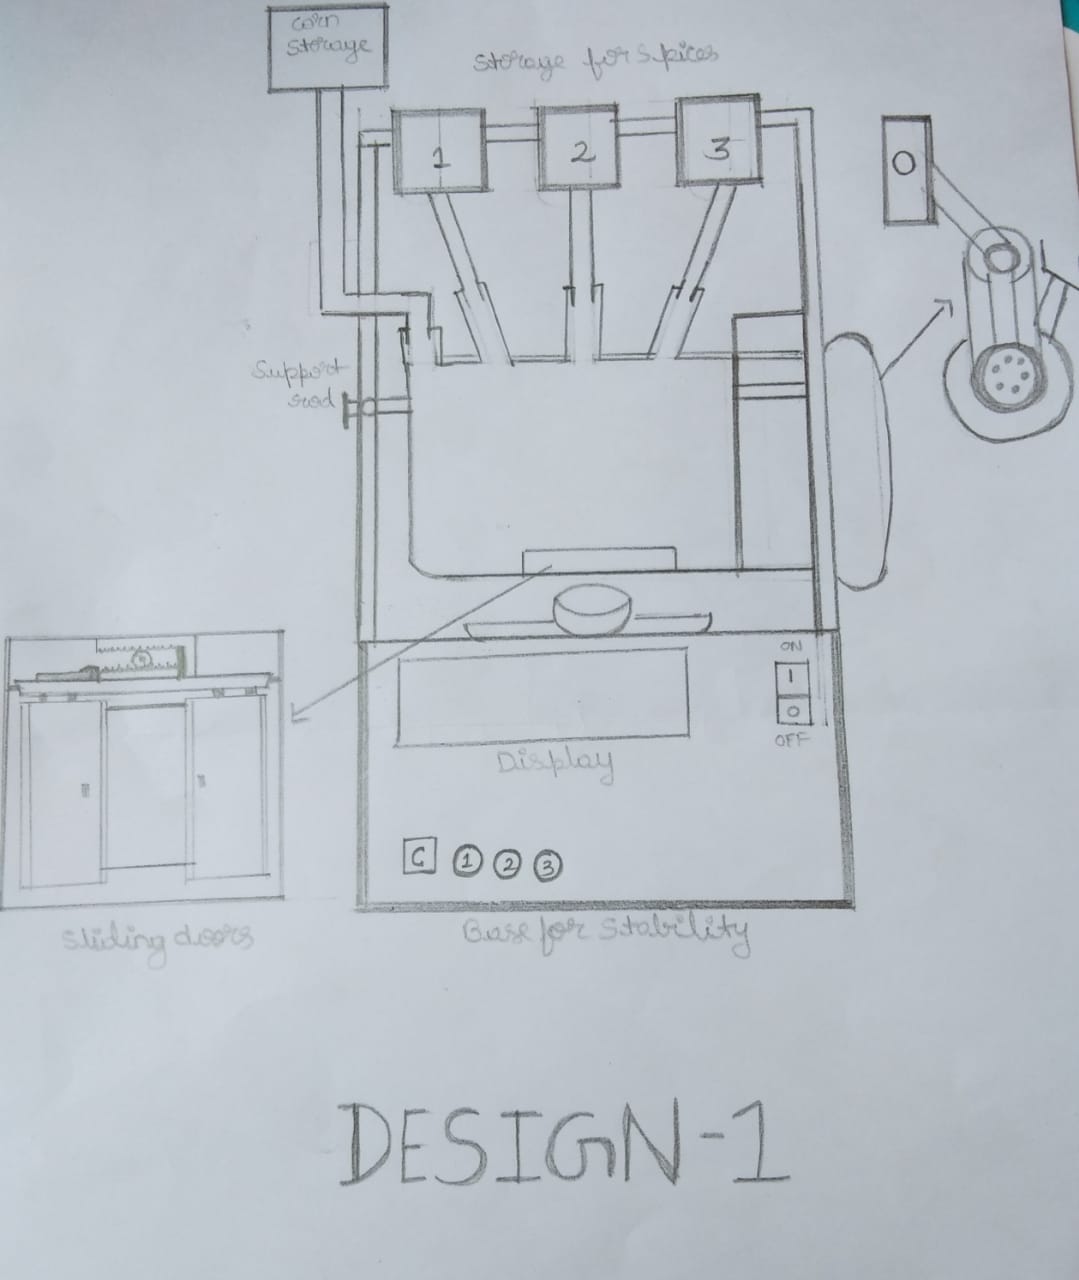 Corn
Storage
Storage for Spices
1
2
3
Support
rod
ON
I
O
OFF
Display
C
1
2
3
Sliding doors
Base for Stability
DESIGN-1